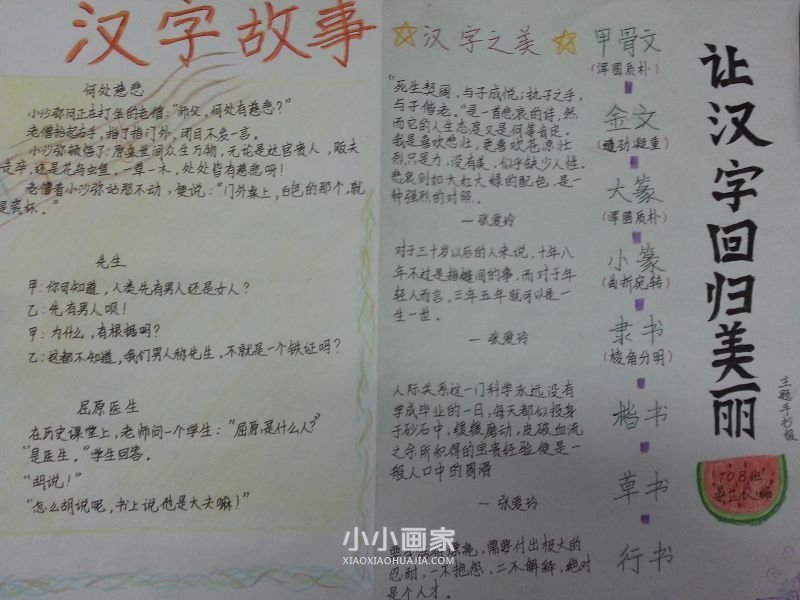 汉字故事
何处慈悲
小沙弥问正在打坐的老僧:"师父,何处有慈悲?"
老僧抬起右手,指了指门外,闭目不発一言。
小沙弥顿悟了:原来世间众生万物,无论是达官贵人,贩夫
走卒,还是花鸟虫鱼,一草一木,处处皆有慈悲呀!
老僧看小沙弥站那不动,便说:"门外桌上,白色的那个,就
是瓷杯。"
先生
甲:你可知道,人类先有男人还是女人?
乙:先有男人呗!
甲:为什么,有根据吗?
乙:这都不知道,我们男人称先生,不就是一个铁证吗?
屈原医生
在历史课堂上,老师问一个学生:"屈原是什么人?"
"是医生。"学生回答。
"胡说!"
"怎么胡说呢,书上说他是大夫嘛!"
汉字之美
"死生契阔,与子成悦;执子之手,
与子偕老。"是一首悲哀的诗,然
而它的人生态度又是何等肯定。
我是喜欢悲壮,更喜欢苍凉壮
烈只是力,没有美,似乎缺少人性。
悲哀则如大红大绿的配色,是一
种强烈的对照。
—张爱玲
对于三十岁以后的人来说,十年八
年不过是指缝间的事,而对于年
轻人而言,三年五年就可以是一
生一世。
—张爱玲
人际关系这一门科学永远没有
学成毕业的一日,每天都似投身
于砂石中,缓缓磨动,皮破血流
之余所积得的宝贵经验便是一
般人口中的圆滑
—张爱玲
需要付出极大的
忍耐,一不抱怨,二不解释,绝对
是个人才。
甲骨文
(浑圆质朴)
金文
(遒动凝重)
大篆
(浑圆质朴)
小篆
(曲折宛转)
隶书
(棱角分明)
楷书
草书
行书
让汉字回归美丽
主题手抄报
1708班
编
小小画家
XIAOXIAOHUAJIA.COM